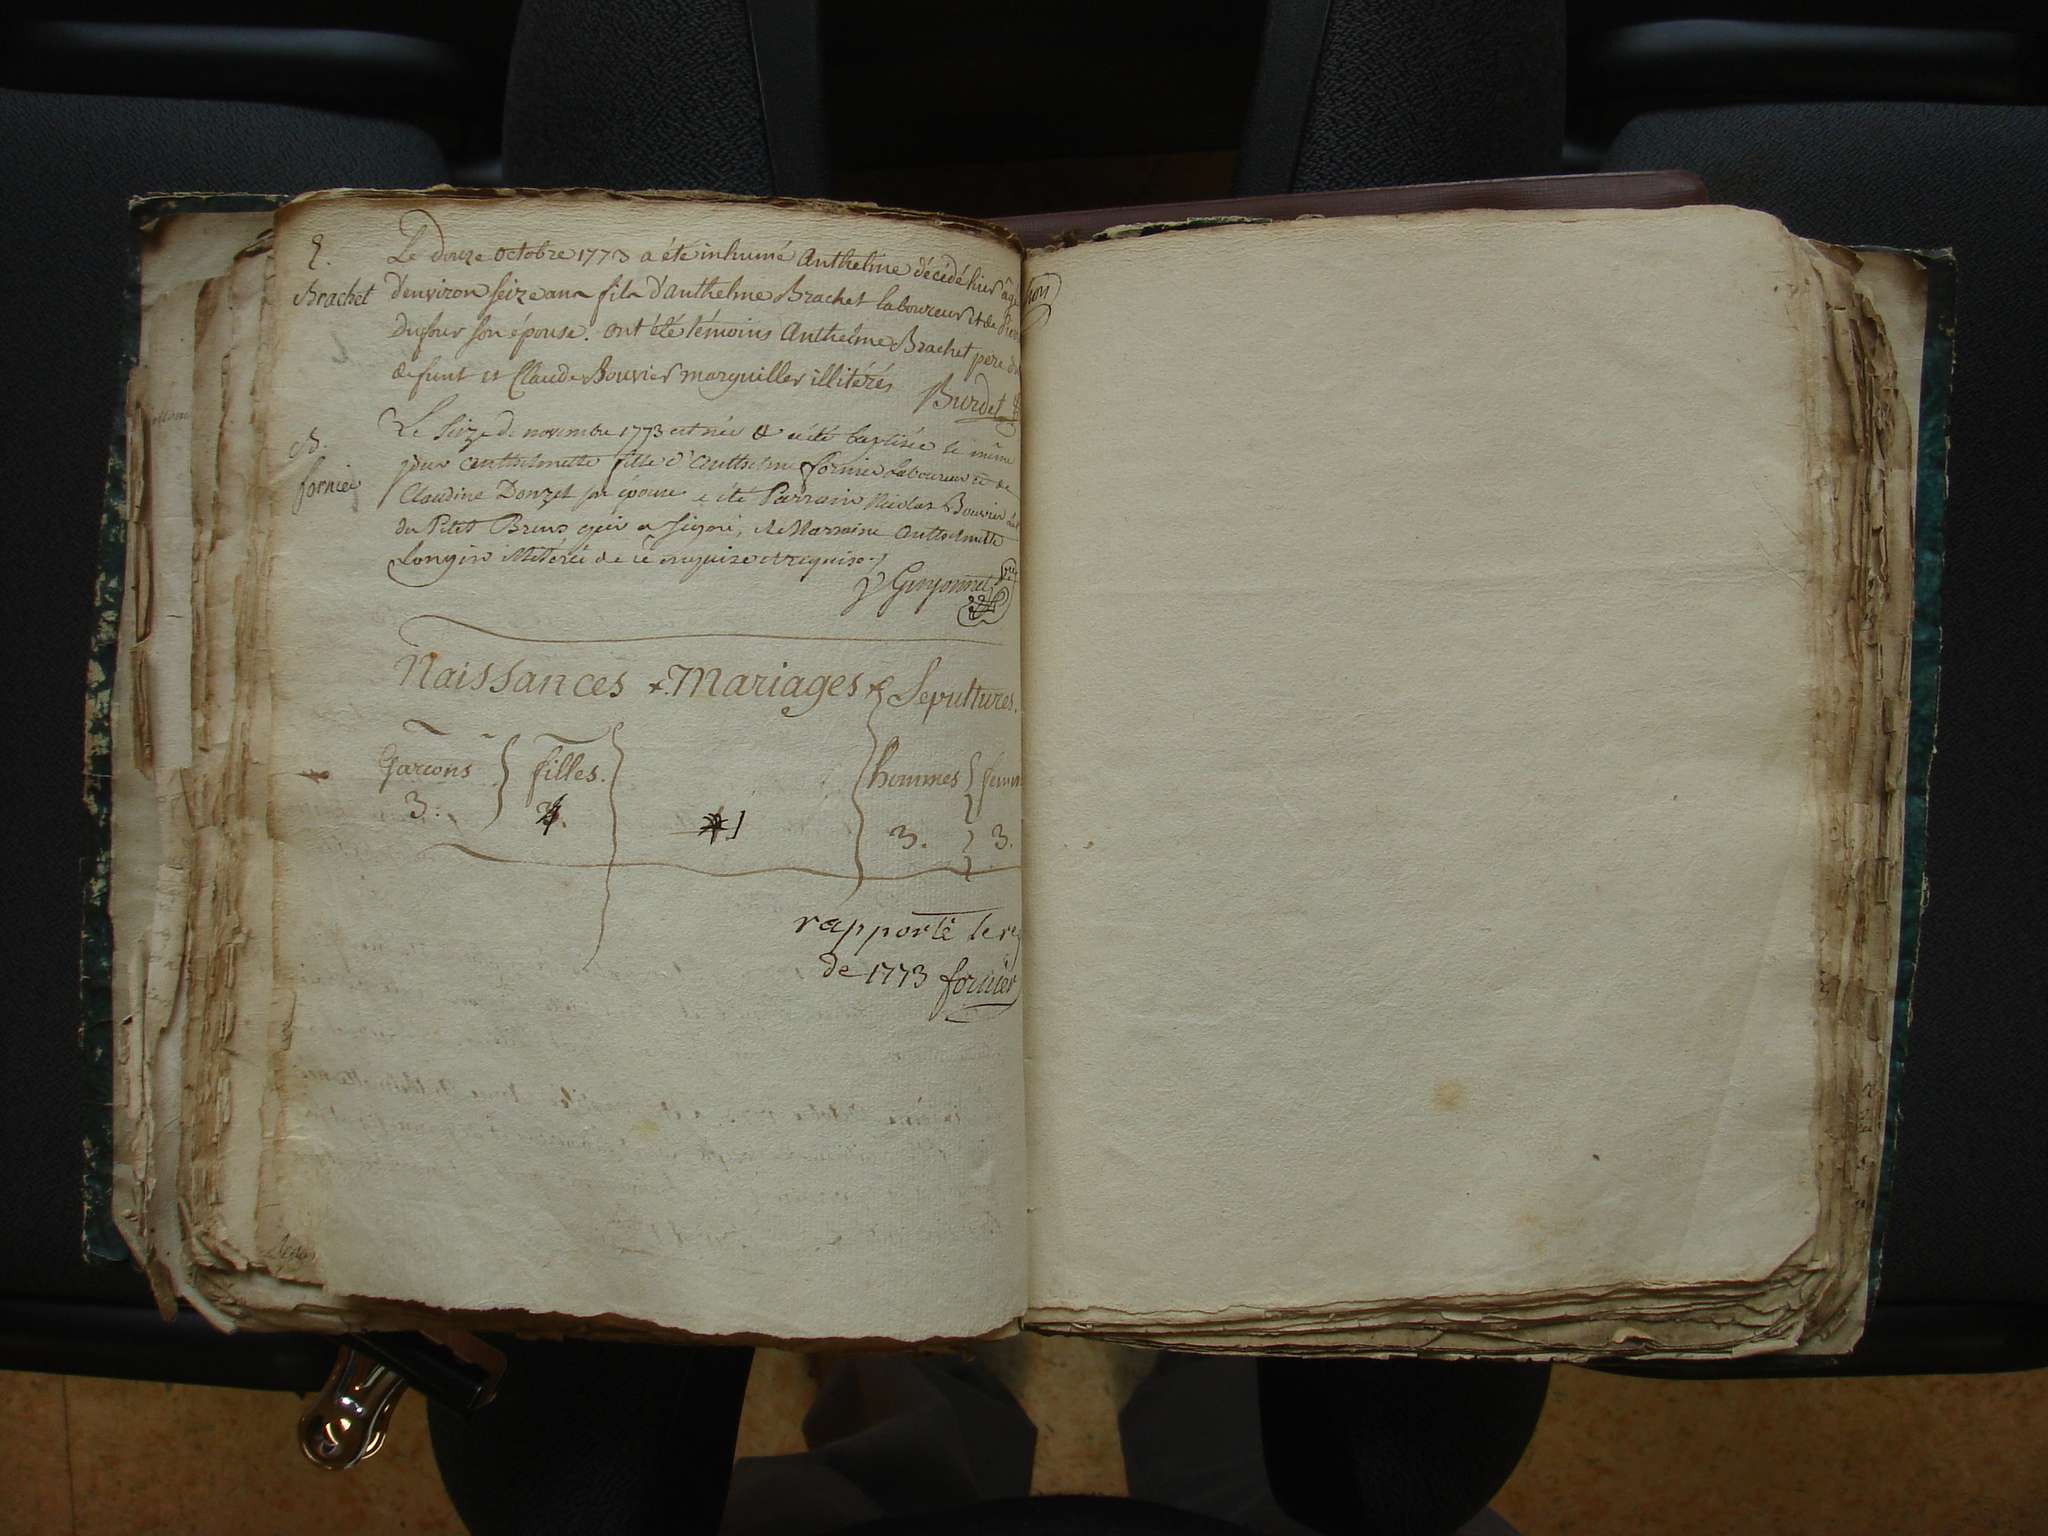 S.
Brachet
Le douze octobre 1773 a été inhumé Anthelme décédé hier âgé
d'environ seize ans fils d'Anthelme Brachet laboureur et de
dufour son épouse. ont été témoins Anthelme Brachet pere du
defunt et Claude Bouvier marguiller illitérés
Burdet
B.
fornier
Le seize de novembre 1773 est née & a été baptisée le même
jour anthelmette fille d'Anthelme fornier laboureur et de
Claudine Donzet son épouse a été Parrain Nicolas Bouvier
du Petit Brens qui a signé, & Marraine Anthelmette
Longin illitérée de ce enquise et requise
Guyonnet
Naissances & Mariages & Sepultures.
Garcons filles. hommes femm
3. 1 3. 3.
rapporté le reg
de 1773 fornier